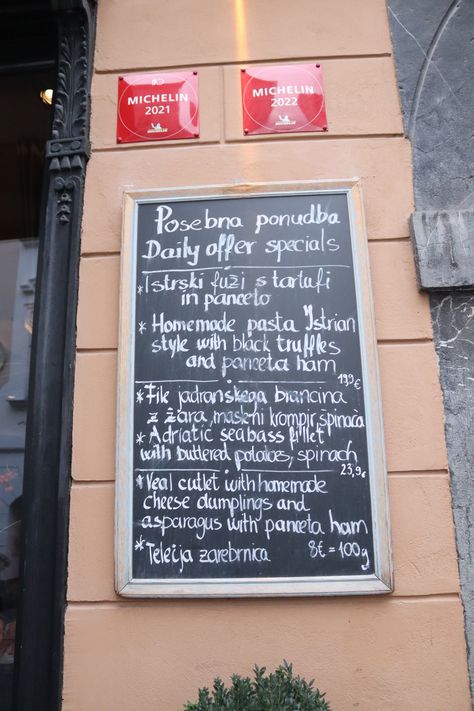 MICHELIN
2021
MICHELIN
2022
Posebna ponudba
Daily offer specials
*Istrski fuži s tartufi
in panceto
* Homemade pasta Istrian
style with black truffles
and panceta ham
19,9€
* File jadranskega brancina
z žara, masleni krompir, špinača
* Adriatic seabass fillet
with buttered potatoes, spinach
23,9€
*Veal cutlet with homemade
cheese dumplings and
asparagus with panceta ham
* Telečja zarebrnica 8€ = 100g